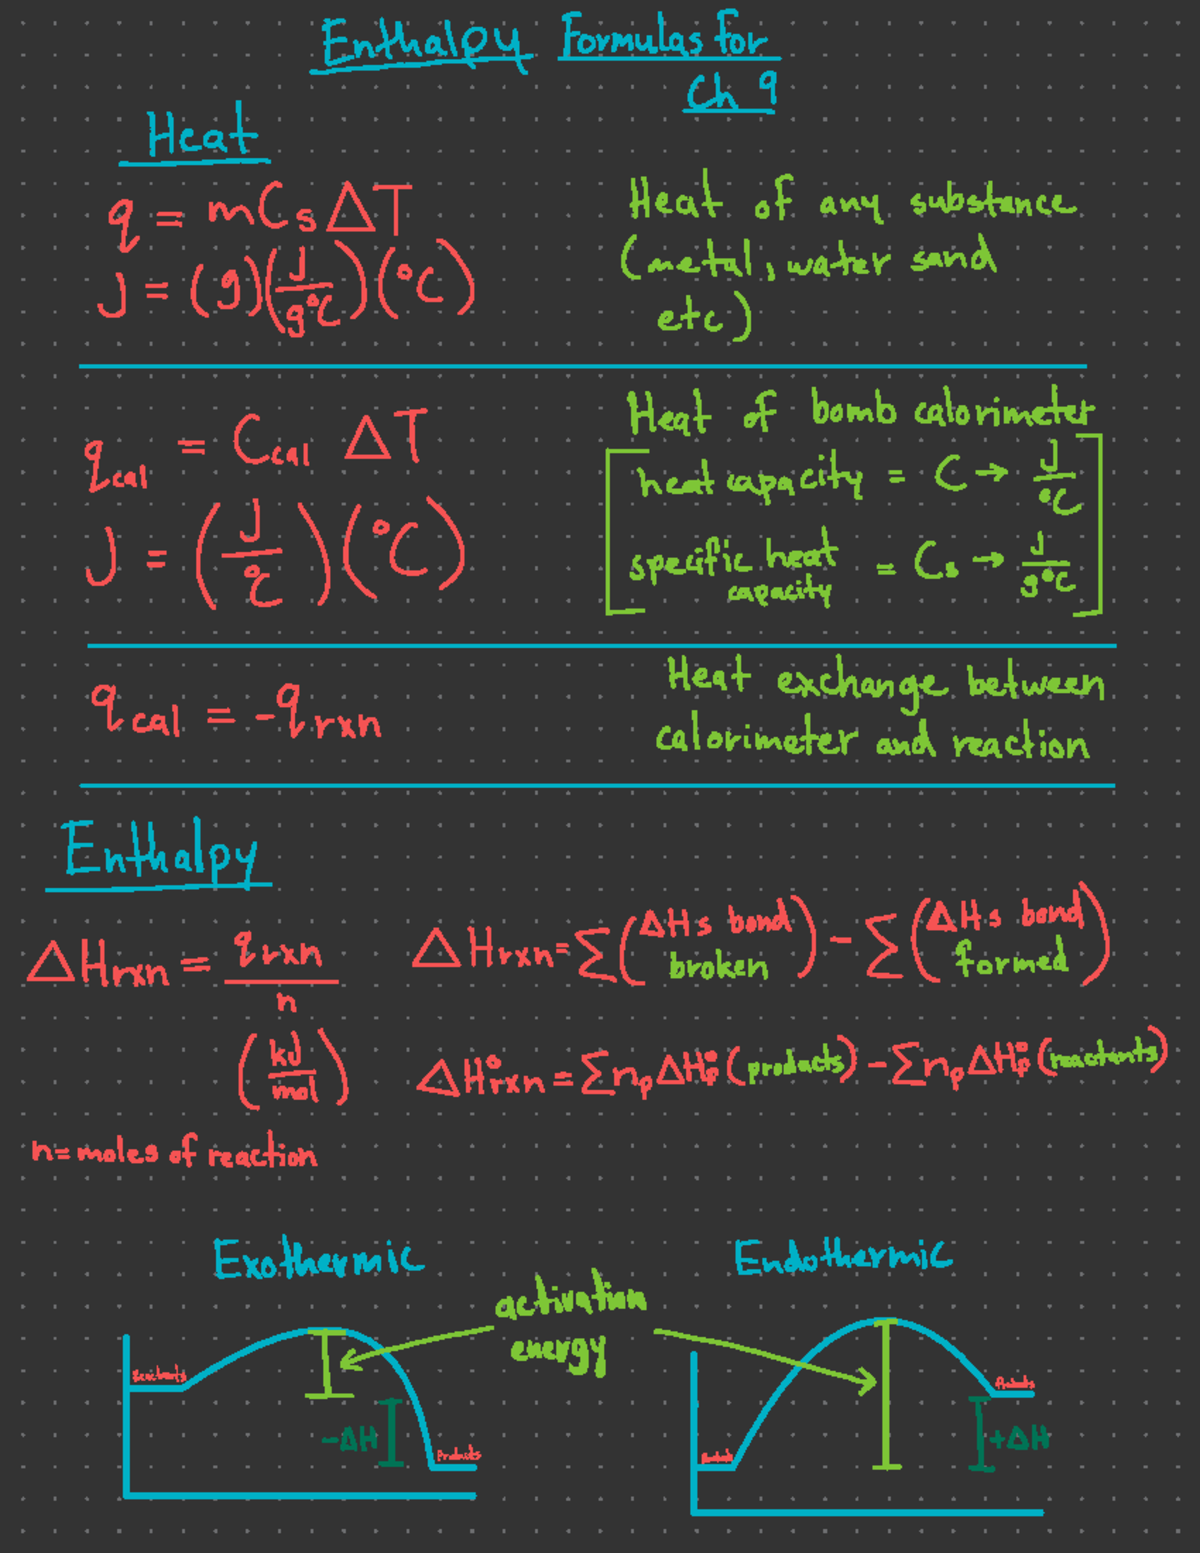 Enthalpy Formulas for
Ch 9
Heat
q = mCsΔT
J = (g)(J/g°C)(°C)
Heat of any substance
(metal, water sand
etc)
q_cal = C_cal ΔT
J = (J/°C)(°C)
Heat of bomb calorimeter
heat capacity = C → J/°C
specific heat = Cs → J/g°C
capacity
q_cal = -q_rxn
Heat exchange between
calorimeter and reaction
Enthalpy
ΔHrxn = q_rxn/n
(kJ/mol)
n = moles of reaction
ΔHrxn = Σ(ΔHs bond broken) - Σ(ΔHs bond formed)
ΔH°rxn = Σn_pΔH°_p (products) - Σn_pΔH°_p (reactants)
Exothermic
Endothermic
activation
energy
Reactants
-ΔH
Products
Products
+ΔH